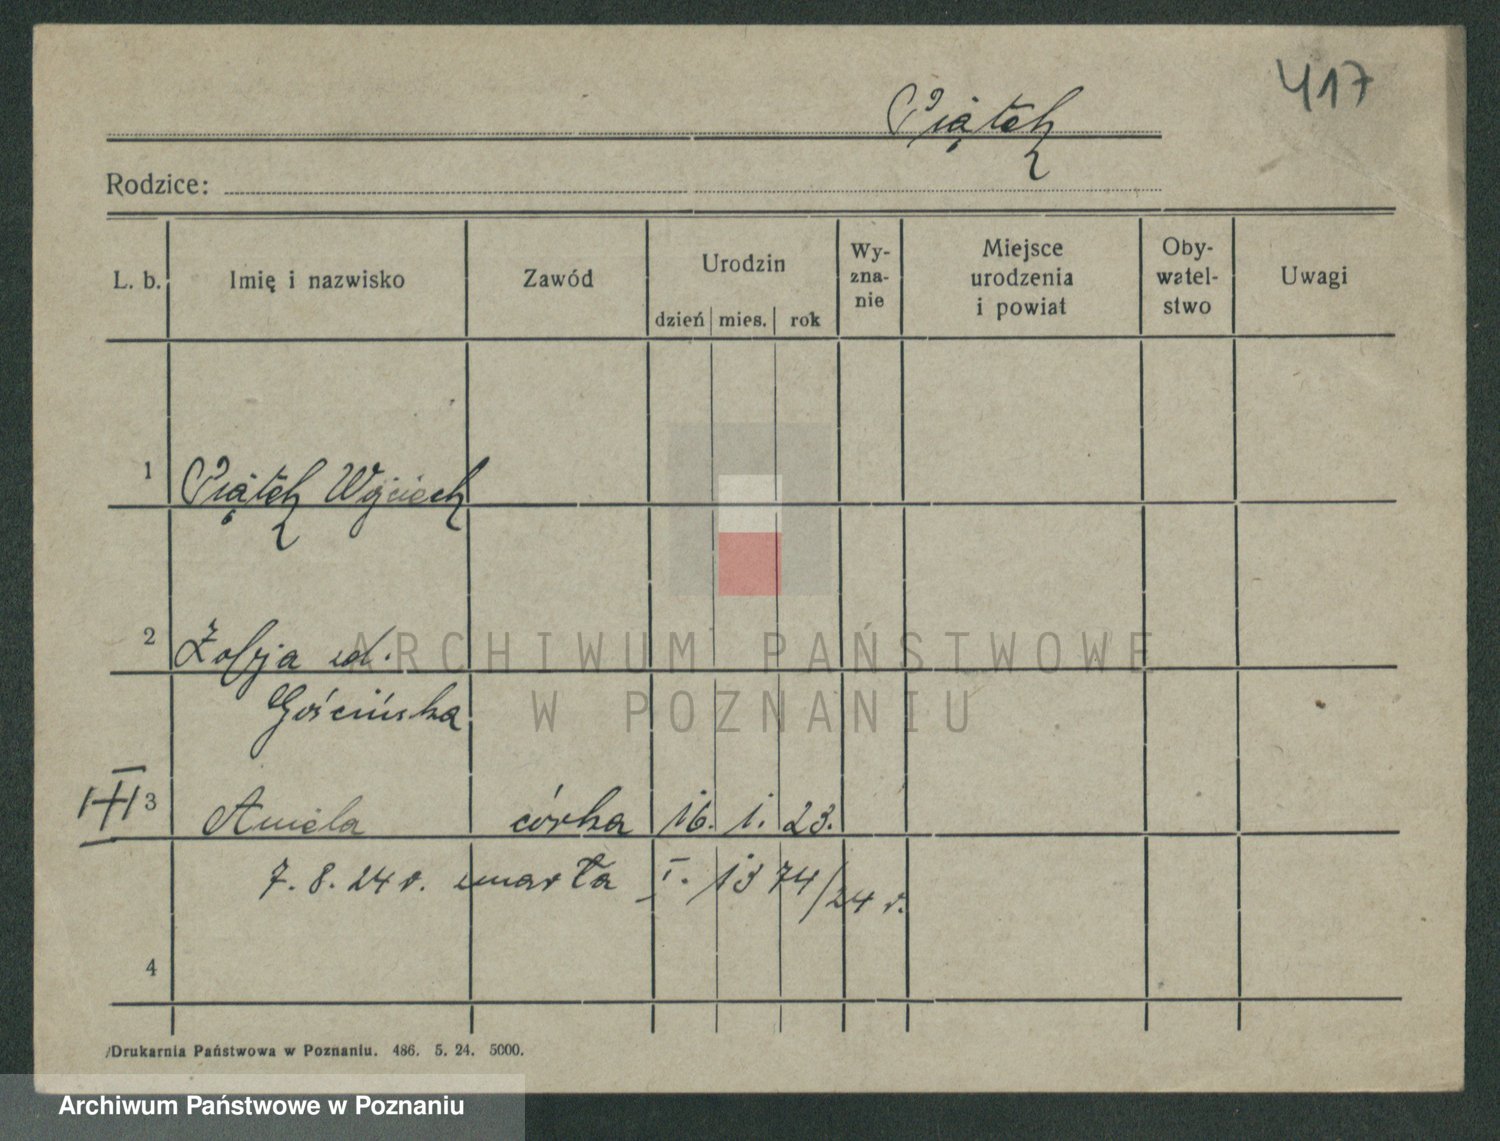 417
Piątek
Rodzice:
L. b.
Imię i nazwisko
Zawód
Urodzin
dzień mies. rok
Wy-
zna-
nie
Miejsce
urodzenia
i powiat
Oby-
watel-
stwo
Uwagi
1 Piątek Wojciech
2 Zofja
Gościńska
3 Aniela córka 16. 1. 23.
7. 8. 24 r. zmarła I. 1374/24 r.
4
Drukarnia Państwowa w Poznaniu. 486. 5. 24. 5000.
ARCHIWUM PAŃSTWOWE
W POZNANIU
Archiwum Państwowe w Poznaniu